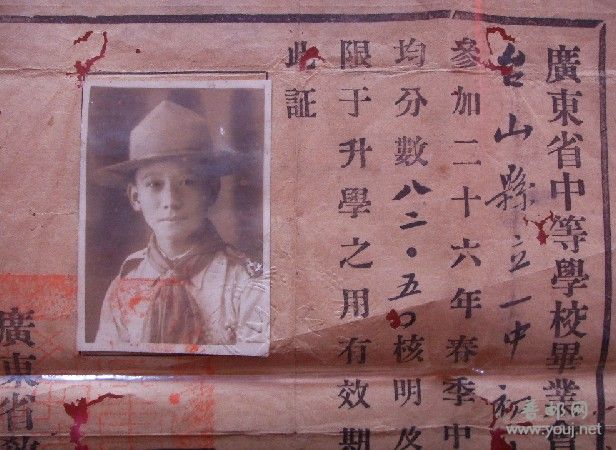 廣東省中等學校畢業會
台山縣立一中初
參加二十六年春季中
均分數八二·五〇核明及
限于升學之用有效期
此証
廣東省教
看邮网
www.youj.net